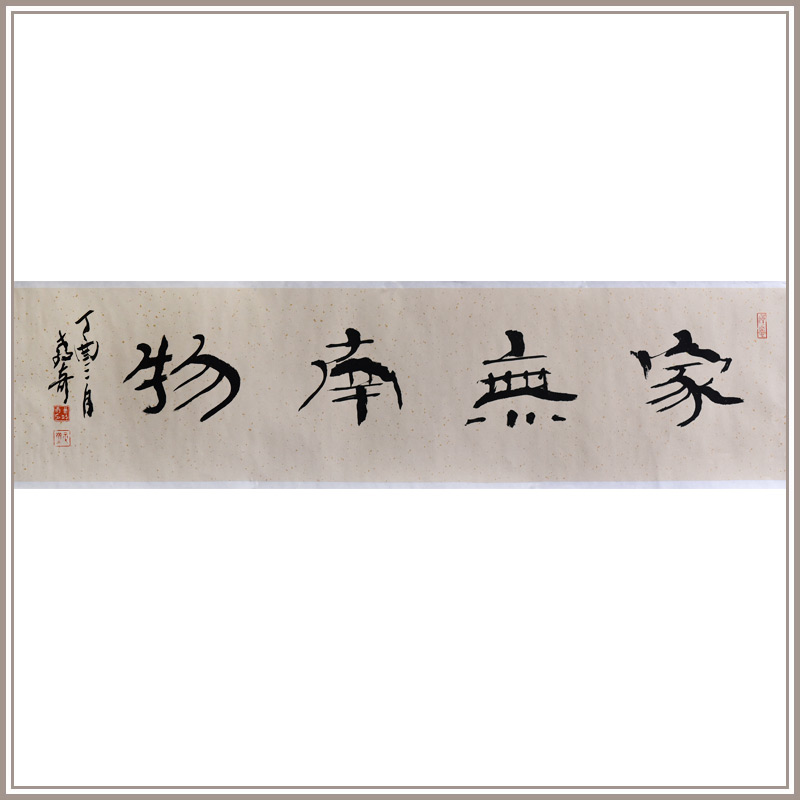 家無南物
丁酉二月